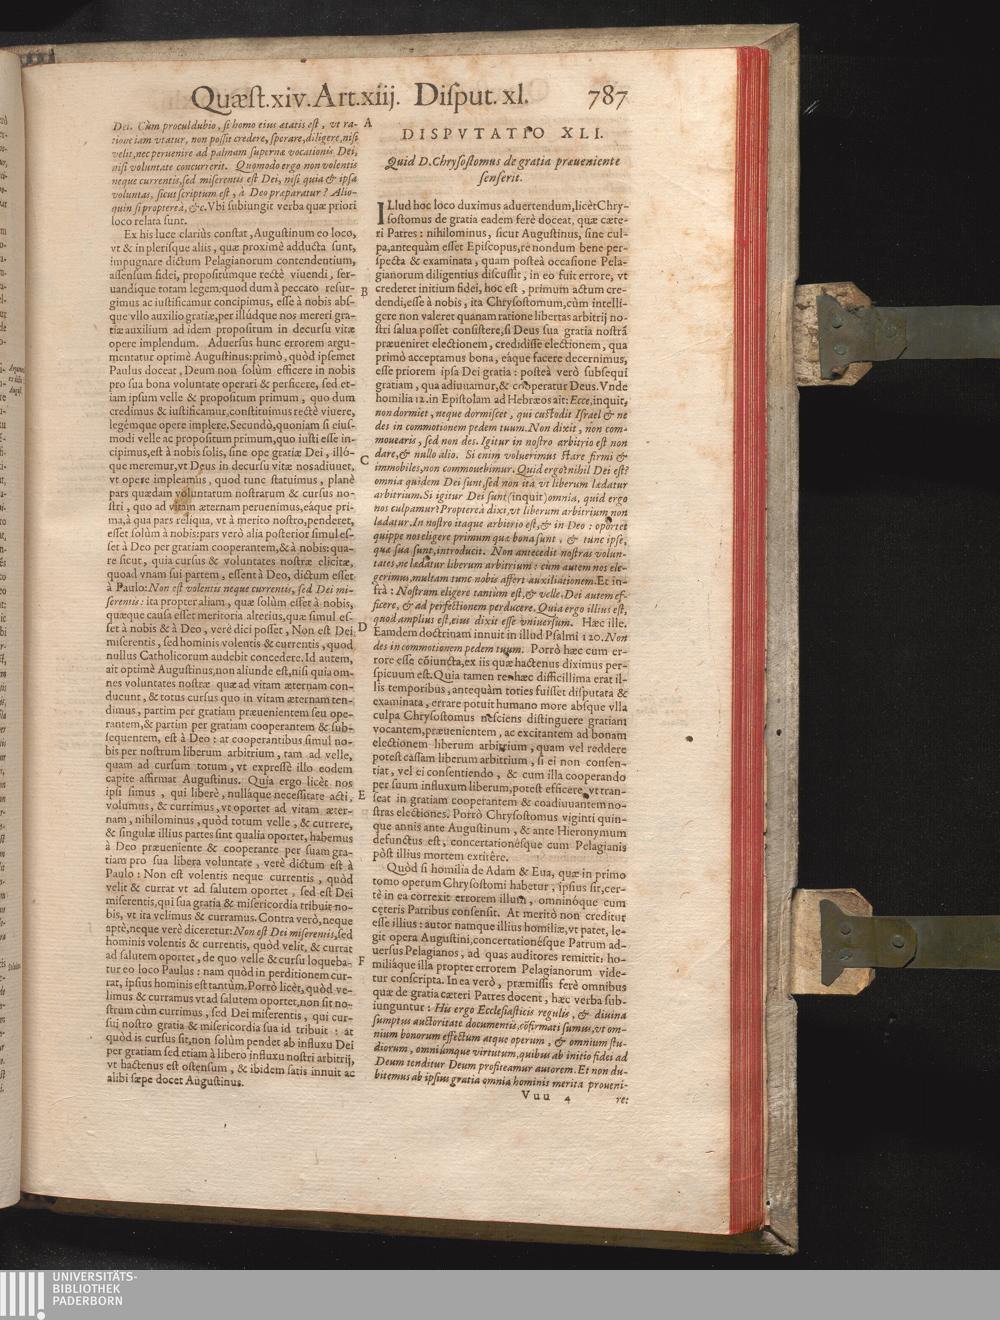 Quæst.xiv.Art.xiij. Disput. xl. 787
Dei. Cùm proculdubio, si homo eius ætatis est, vt ra-
tione iam vtatur, non possit credere, sperare, diligere, nisi
velit, nec peruenire ad palmam supernæ vocationis Dei,
nisi voluntate concurrerit. Quomodo ergo non volentis
neque currentis, sed miserentis est Dei, nisi quia & ipsa
voluntas, sicut scriptum est, à Deo præparatur? Alio-
quin si propterea, &c. Vbi subiungit verba quæ priori
loco relata sunt.
Ex his luce clariùs constat, Augustinum eo loco,
vt & in plerisque aliis, quæ proximè adducta sunt,
impugnare dictum Pelagianorum contendentium,
assensum fidei, propositúmque rectè viuendi, ser-
uandíque totam legem: quod dum à peccato resur-
gimus ac iustificamur concipimus, esse à nobis abs-
que vllo auxilio gratiæ, per illúdque nos mereri gra-
tiæ auxilium ad idem propositum in decursu vitæ
opere implendum. Aduersus hunc errorem argu-
mentatur optimè Augustinus: primò, quòd ipsemet
Paulus doceat, Deum non solùm efficere in nobis
pro sua bona voluntate operari & perficere, sed et-
iam ipsum velle & propositum primum, quo dum
credimus & iustificamur, constituimus rectè viuere,
legémque opere implere. Secundò, quoniam si eius-
modi velle ac propositum primum, quo iusti esse in-
cipimus, est à nobis solis, sine ope gratiæ Dei, illó-
que meremur, vt Deus in decursu vitæ nos adiuuet,
vt opere impleamus, quod tunc statuimus, planè
pars quædam voluntatum nostrarum & cursus no-
stri, quo ad vitam æternam peruenimus, eáque pri-
ma, à qua pars reliqua, vt à merito nostro, penderet,
esset solùm à nobis: pars verò alia posterior simul es-
set à Deo per gratiam cooperantem, & à nobis: qua-
re sicut, quia cursus & voluntates nostræ elicitæ,
quoad vnam sui partem, essent à Deo, dictum esset
à Paulo: Non est volentis neque currentis, sed Dei mi-
serentis: ita propter aliam, quæ solùm esset à nobis,
quæque causa esset meritoria alterius, quæ simul es-
set à nobis & à Deo, verè dici posset, Non est Dei
miserentis, sed hominis volentis & currentis, quod
nullus Catholicorum audebit concedere. Id autem,
ait optimè Augustinus, non aliunde est, nisi quia om-
nes voluntates nostræ quæ ad vitam æternam con-
ducunt, & totus cursus quo in vitam æternam ten-
dimus, partim per gratiam præuenientem seu ope-
rantem, & partim per gratiam cooperantem & sub-
sequentem, est à Deo: at cooperantibus simul no-
bis per nostrum liberum arbitrium, tam ad velle,
quam ad cursum totum, vt expressè illo eodem
capite affirmat Augustinus. Quia ergo licèt nos
ipsi simus, qui liberè, nullâque necessitate acti,
volumus, & currimus, vt oportet ad vitam æter-
nam, nihilominus, quòd totum velle, & currere,
& singulæ illius partes sint qualia oportet, habemus
à Deo præueniente & cooperante per suam gra-
tiam pro sua libera voluntate, verè dictum est à
Paulo: Non est volentis neque currentis, quòd
velit & currat vt ad salutem oportet, sed est Dei
miserentis, qui sua gratia & misericordia tribuit no-
bis, vt ita velimus & curramus. Contra verò, neque
aptè, neque verè diceretur: Non est Dei miserentis, sed
hominis volentis & currentis, quòd velit, & currat
ad salutem oportet, de quo velle & cursu loqueba-
tur eo loco Paulus: nam quòd in perditionem cur-
rat, ipsius hominis est tantùm. Porrò licèt, quòd ve-
limus & curramus vt ad salutem oportet, non sit no-
strum cùm currimus, sed Dei miserentis, qui cur-
sui nostro gratia & misericordia sua id tribuit: at
quòd is cursus sit, non solùm pendet ab influxu Dei
per gratiam sed etiam à libero influxu nostri arbitrij,
vt hactenus est ostensum, & ibidem satis innuit ac
alibi sæpe docet Augustinus.
A
B
C
D
E
F
DISPVTATIO XLI.
Quid D. Chrysostomus de gratia præueniente
senserit.
ILlud hoc loco duximus aduertendum, licèt Chry-
sostomus de gratia eadem ferè doceat, quæ cæte-
ri Patres: nihilominus, sicut Augustinus, sine cul-
pa, antequàm esset Episcopus, re nondum bene per-
specta & examinata, quam posteà occasione Pela-
gianorum diligentius discussit, in eo fuit errore, vt
crederet initium fidei, hoc est, primum actum cre-
dendi, esse à nobis, ita Chrysostomum, cùm intelli-
gere non valeret quanam ratione libertas arbitrij no-
stri salua posset consistere, si Deus sua gratia nostrã
præueniret electionem, credidisse electionem, qua
primò acceptamus bona, eáque facere decernimus,
esse priorem ipsa Dei gratia: posteà verò subsequi
gratiam, qua adiuuamur, & cooperatur Deus. Vnde
homilia 12. in Epistolam ad Hebræos ait: Ecce, inquit,
non dormiet, neque dormiscet, qui custodit Israel & ne
des in commotionem pedem tuum. Non dixit, non com-
mouearis, sed non des. Igitur in nostro arbitrio est non
dare, & nullo alio. Si enim voluerimus stare firmi &
immobiles, non commouebimur. Quid ergo? nihil Dei est?
omnia quidem Dei sunt, sed non ita vt liberum lædatur
arbitrium. Si igitur Dei sunt (inquit) omnia, quid ergo
nos culpamur? Propterea dixi, vt liberum arbitrium non
lædatur. In nostro itaque arbitrio est, & in Deo: oportet
quippe nos eligere primum quæ bona sunt, & tunc ipse,
quæ sua sunt, introducit. Non antecedit nostras volun-
tates, ne lædatur liberum arbitrium: cùm autem nos ele-
gerimus, multam tunc nobis affert auxiliationem. Et in-
frà: Nostrum eligere tantùm est, & velle. Dei autem ef-
ficere, & ad perfectionem perducere. Quia ergo illius est,
quod amplius est, eius dixit esse vniuersum. Hæc ille.
Eamdem doctrinam innuit in illud Psalmi 120. Non
des in commotionem pedem tuum. Porrò hæc cum er-
rore esse cõiuncta, ex iis quæ hactenus diximus per-
spicuum est. Quia tamen res hæc difficillima erat il-
lis temporibus, antequàm toties fuisset disputata &
examinata, errare potuit humano more absque vlla
culpa Chrysostomus nesciens distinguere gratiam
vocantem, præuenientem, ac excitantem ad bonam
electionem liberum arbitrium, quam vel reddere
potest cassam liberum arbitrium, si ei non consen-
tiat, vel ei consentiendo, & cum illa cooperando
per suum influxum liberum, potest efficere, vt tran-
seat in gratiam cooperantem & coadiuuantem no-
stras electiones. Porrò Chrysostomus viginti quin-
que annis ante Augustinum, & ante Hieronymum
defunctus est, concertationésque cum Pelagianis
pòst illius mortem extitêre.
Quòd si homilia de Adam & Eua, quæ in primo
tomo operum Chrysostomi habetur, ipsius sit, cer-
tè in ea correxit errorem illum, omninóque cum
cęteris Patribus consensit. At meritò non creditur
esse illius: autor namque illius homiliæ, vt patet, le-
git opera Augustini, concertationésque Patrum ad-
uersus Pelagianos, ad quas auditores remittit: ho-
miliáque illa propter errorem Pelagianorum vide-
tur conscripta. In ea verò, præmissis ferè omnibus
quæ de gratia cæteri Patres docent, hæc verba sub-
iunguntur: His ergo Ecclesiasticis regulis, & diuina
sumptus auctoritate documentis, cõfirmati sumus, vt om-
nium bonorum effectum atque operum, & omnium stu-
diorum, omniúmque virtutum, quibus ab initio fidei ad
Deum tenditur Deum profiteamur autorem. Et non du-
bitemus ab ipsius gratia omnia hominis merita proueni-
Vuu 4 re:
UNIVERSITÄTS-
BIBLIOTHEK
PADERBORN